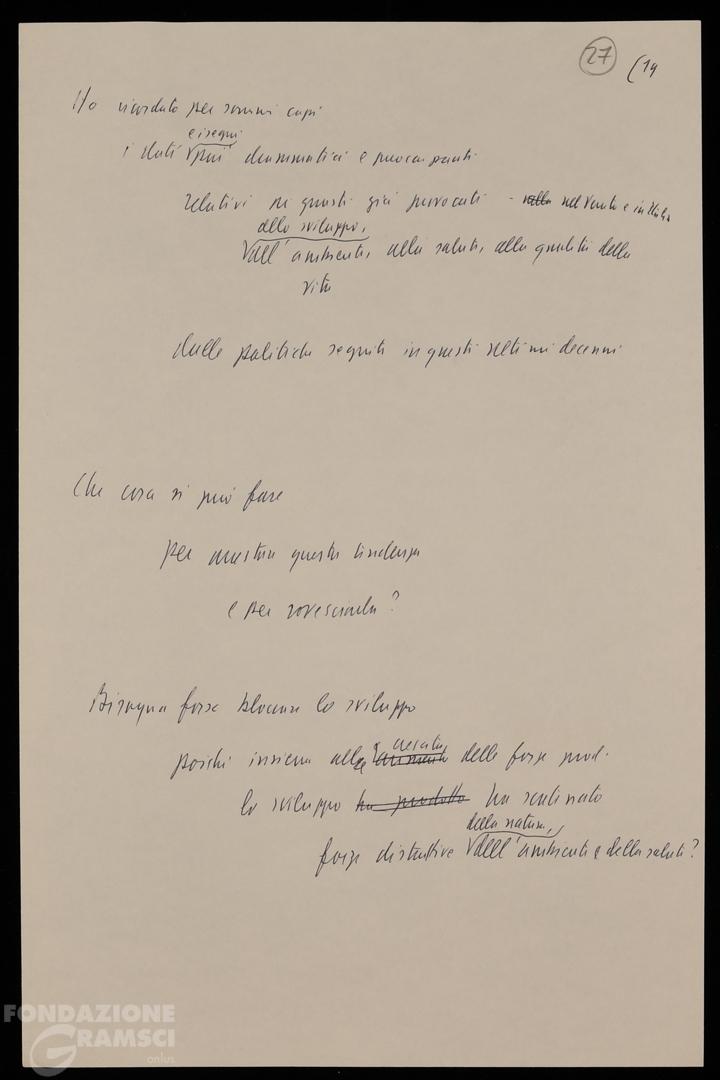 27 (14
Ho ricordato per sommi capi
e i segni
i dati più drammatici e preoccupanti
relativi ai guasti già provocati - nel Veneto e in Italia
allo sviluppo,
all'ambiente, alla salute, alla qualità della
vita
dalle politiche seguite in questi ultimi decenni
Che cosa si può fare
per arrestare questa tendenza
e per rovesciarla?
Bisogna forse bloccare lo sviluppo
crescita
poiché insieme alla aumento delle forze prod.
lo sviluppo ha prodotto ha scatenato
della natura,
forze distruttive dell'ambiente e della salute?
FONDAZIONE
GRAMSCI
onlus